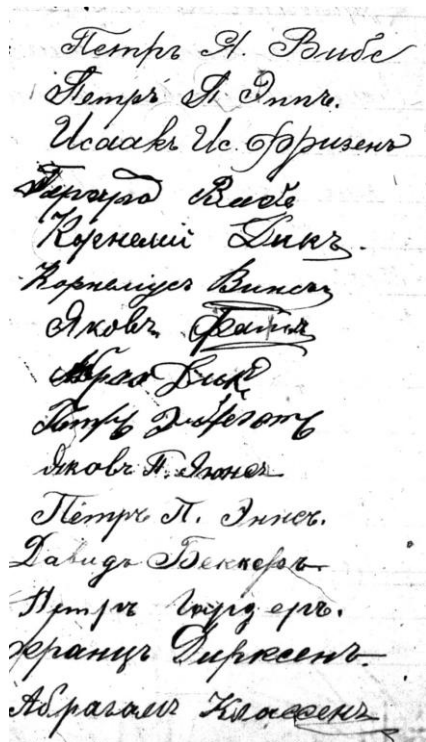 Петръ Я. Вибе
Петръ П Эппъ.
Исаакъ Ис. Фризенъ
Герардъ Вибе
Корнелий Дикъ.
Корнелиусъ Винсъ
Яковъ
Абрам Дикъ
Петръ
Яковъ П. Эннсъ
Петръ П. Эннсъ.
Давидъ Беккеръ
Петръ Гардеръ.
Францъ Дирксенъ
Абрагамъ Классенъ